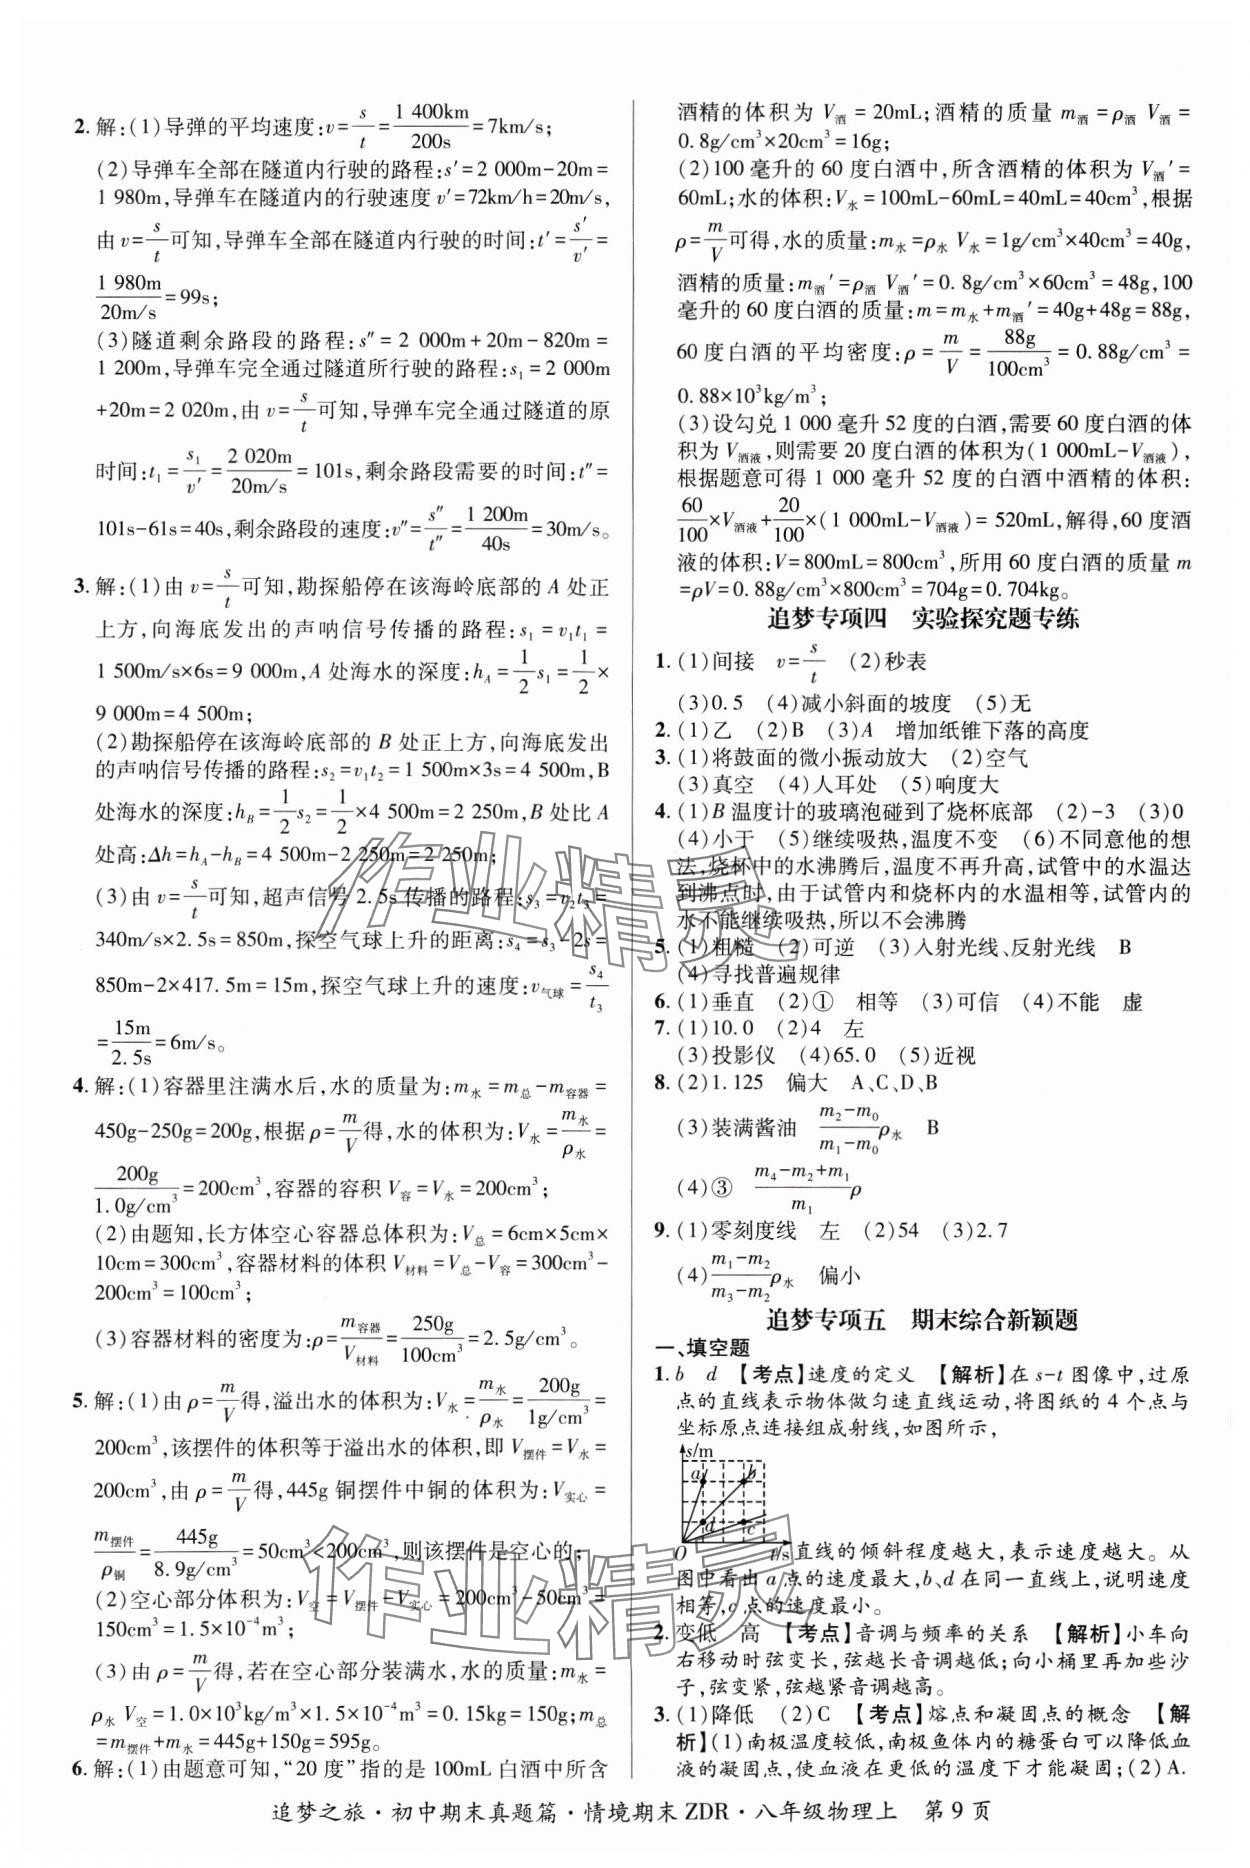 2. 解:(1)导弹的平均速度:v=s/t=1 400km/200s=7km/s;
(2)导弹车全部在隧道内行驶的路程:s′=2 000m-20m=
1 980m,导弹车在隧道内的行驶速度 v′=72km/h=20m/s,
由 v=s/t可知,导弹车全部在隧道内行驶的时间:t′=s′/v′=
1 980m/20m/s=99s;
(3)隧道剩余路段的路程:s″=2 000m+20m-820m=
1 200m,导弹车完全通过隧道所行驶的路程:s₁=2 000m
+20m=2 020m,由 v=s/t可知,导弹车完全通过隧道的原
时间:t₁=s₁/v′=2 020m/20m/s=101s,剩余路段需要的时间:t″=
101s-61s=40s,剩余路段的速度:v″=s″/t″=1 200m/40s=30m/s。
3. 解:(1)由 v=s/t可知,勘探船停在该海岭底部的 A 处正
上方,向海底发出的声呐信号传播的路程:s₁=v₁t₁=
1 500m/s×6s=9 000m,A 处海水的深度:h_A=1/2s₁=1/2×
9 000m=4 500m;
(2)勘探船停在该海岭底部的 B 处正上方,向海底发出
的声呐信号传播的路程:s₂=v₁t₂=1 500m×3s=4 500m,B
处海水的深度:h_B=1/2s₂=1/2×4 500m=2 250m,B 处比 A
处高:Δh=h_A-h_B=4 500m-2 250m=2 250m;
(3)由 v=s/t可知,超声信号 2.5s 传播的路程:s₃=v₂t₃=
340m/s×2.5s=850m,探空气球上升的距离:s₄=s₃-2s=
850m-2×417.5m=15m,探空气球上升的速度:v气球=s₄/t₃
=15m/2.5s=6m/s。
4. 解:(1)容器里注满水后,水的质量为:m水=m总-m容器=
450g-250g=200g,根据 ρ=m/V得,水的体积为:V水=m水/ρ水=
200g/1.0g/cm³=200cm³,容器的容积 V容=V水=200cm³;
(2)由题知,长方体空心容器总体积为:V总=6cm×5cm×
10cm=300cm³,容器材料的体积 V材料=V总-V容=300cm³-
200cm³=100cm³;
(3)容器材料的密度为:ρ=m容器/V材料=250g/100cm³=2.5g/cm³。
5. 解:(1)由 ρ=m/V得,溢出水的体积为:V水=m水/ρ水=200g/1g/cm³=
200cm³,该摆件的体积等于溢出水的体积,即 V摆件=V水=
200cm³,由 ρ=m/V得,445g 铜摆件中铜的体积为:V实心=
m摆件/ρ铜=445g/8.9g/cm³=50cm³<200cm³,则该摆件是空心的;
(2)空心部分体积为:V空=V摆件-V实心=200cm³-50cm³=
150cm³=1.5×10⁻⁴m³;
(3)由 ρ=m/V得,若在空心部分装满水,水的质量:m水=
ρ水 V空=1.0×10³kg/m³×1.5×10⁻⁴m³=0.15kg=150g;m总
=m摆件+m水=445g+150g=595g。
6. 解:(1)由题意可知,“20 度”指的是 100mL 白酒中所含
酒精的体积为 V酒=20mL;酒精的质量 m酒=ρ酒 V酒=
0.8g/cm³×20cm³=16g;
(2)100 毫升的 60 度白酒中,所含酒精的体积为 V酒′=
60mL;水的体积:V水=100mL-60mL=40mL=40cm³,根据
ρ=m/V可得,水的质量:m水=ρ水 V水=1g/cm³×40cm³=40g,
酒精的质量:m酒′=ρ酒 V酒′=0.8g/cm³×60cm³=48g,100
毫升的 60 度白酒的质量:m=m水+m酒′=40g+48g=88g,
60 度白酒的平均密度:ρ=m/V=88g/100cm³=0.88g/cm³=
0.88×10³kg/m³;
(3)设勾兑 1 000 毫升 52 度的白酒,需要 60 度白酒的体
积为 V酒液,则需要 20 度白酒的体积为(1 000mL-V酒液),
根据题意可得 1 000 毫升 52 度的白酒中酒精的体积:
60/100×V酒液+20/100×(1 000mL-V酒液)=520mL,解得,60 度酒
液的体积:V=800mL=800cm³,所用 60 度白酒的质量 m
=ρV=0.88g/cm³×800cm³=704g=0.704kg。
追梦专项四 实验探究题专练
1. (1)间接 v=s/t (2)秒表
(3)0.5 (4)减小斜面的坡度 (5)无
2. (1)乙 (2)B (3)A 增加纸锥下落的高度
3. (1)将鼓面的微小振动放大 (2)空气
(3)真空 (4)人耳处 (5)响度大
4. (1)B 温度计的玻璃泡碰到了烧杯底部 (2)-3 (3)0
(4)小于 (5)继续吸热,温度不变 (6)不同意他的想
法,烧杯中的水沸腾后,温度不再升高,试管中的水温达
到沸点时,由于试管内和烧杯内的水温相等,试管内的
水不能继续吸热,所以不会沸腾
5. (1)粗糙 (2)可逆 (3)入射光线、反射光线 B
(4)寻找普遍规律
6. (1)垂直 (2)① 相等 (3)可信 (4)不能 虚
7. (1)10.0 (2)4 左
(3)投影仪 (4)65.0 (5)近视
8. (2)1.125 偏大 A、C、D、B
(3)装满酱油 m₂-m₀/m₁-m₀ρ水 B
(4)③ m₄-m₂+m₁/m₁ρ
9. (1)零刻度线 左 (2)54 (3)2.7
(4)m₁-m₂/m₃-m₂ρ水 偏小
追梦专项五 期末综合新颖题
一、填空题
1. b d 【考点】速度的定义 【解析】在 s-t 图像中,过原
点的直线表示物体做匀速直线运动,将图纸的 4 个点与
坐标原点连接组成射线,如图所示,
s/m
a b
d c
O t/s
直线的倾斜程度越大,表示速度越大。从
图中看出 a 点的速度最大,b、d 在同一直线上,说明速度
相等,c 点的速度最小。
2. 变低 高 【考点】音调与频率的关系 【解析】小车向
右移动时弦变长,弦越长音调越低;向小桶里再加些沙
子,弦变紧,弦越紧音调越高。
3. (1)降低 (2)C 【考点】熔点和凝固点的概念 【解
析】(1)南极温度较低,南极鱼体内的糖蛋白可以降低血
液的凝固点,使血液在更低的温度下才能凝固;(2)A.
追梦之旅·初中期末真题篇·情境期末 ZDR·八年级物理上 第 9 页
作业精灵
作业精灵